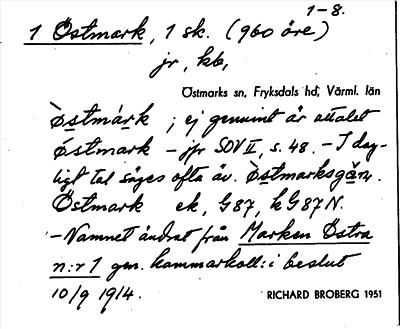 1-8.
1 Östmark, 1 sk. (960 öre)
jr, kb,
Östmarks sn, Fryksdals hd, Värml. län
östmárk ; ej genuint är uttalet
östmark - jfr SOV II, s. 48. - I dag-
ligt tal säges ofta äv. östmarksgån.
Östmark ek, G87, kG87N.
- Namnet ändrat från Marken Östra
n:r 1 gm. kammarkoll:s beslut
10/9 1914.
RICHARD BROBERG 1951